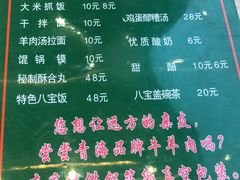 大米抓饭 10元 8元
鸡蛋醪糟汤 28元
干拌面 10元
羊肉汤拉面 10元
优质酸奶 6元
馄锅馍 10元
甜醅 10元 6元
秘制酥合丸 48元
特色八宝饭 48元
八宝盖碗茶 20元
您想让远方的亲友，
尝尝青海品牌牛羊肉吗？
真空包装。